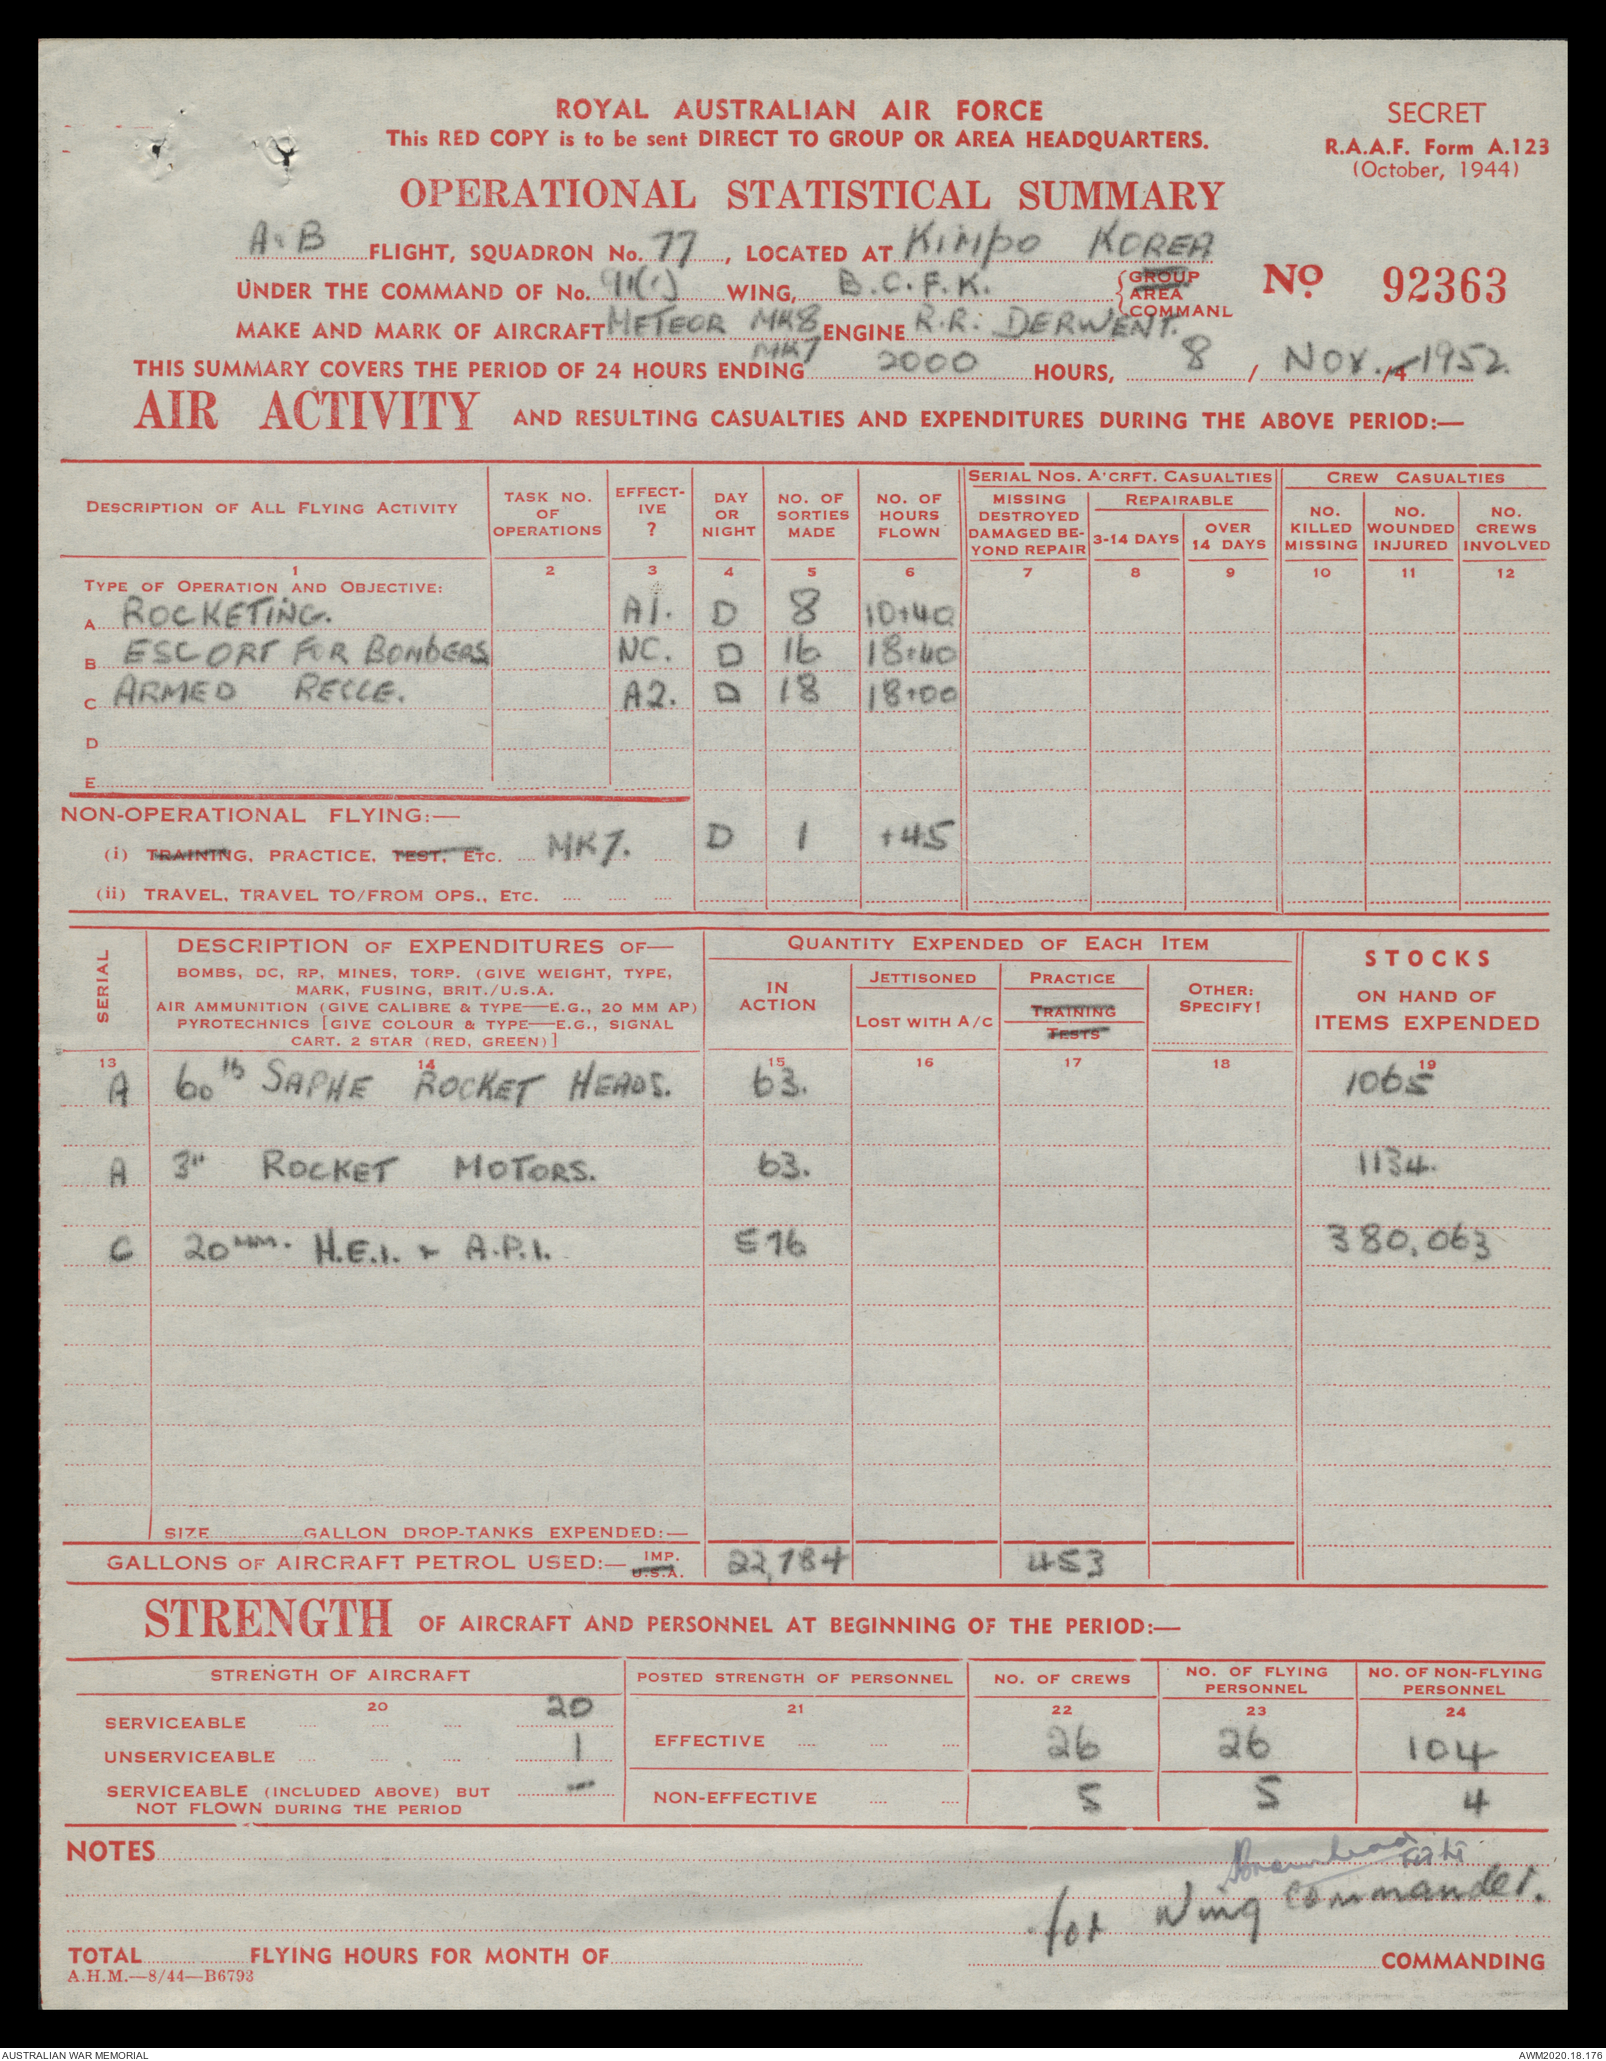 ROYAL AUSTRALIAN AIR FORCE
This RED COPY is to be sent DIRECT TO GROUP OR AREA HEADQUARTERS.
SECRET
R.A.A.F. Form A.123
(October, 1944)
OPERATIONAL STATISTICAL SUMMARY
A & B FLIGHT, SQUADRON No. 77, LOCATED AT KIMPO KOREA
UNDER THE COMMAND OF No. 91(C) WING, B.C.F.K. GROUP AREA COMMAND
No 92363
MAKE AND MARK OF AIRCRAFT METEOR MK8 ENGINE R.R. DERWENT.
MK7
THIS SUMMARY COVERS THE PERIOD OF 24 HOURS ENDING 2000 HOURS, 8 / NOV. /4 1952.
AIR ACTIVITY AND RESULTING CASUALTIES AND EXPENDITURES DURING THE ABOVE PERIOD:—
DESCRIPTION OF ALL FLYING ACTIVITY
TASK NO. OF OPERATIONS
EFFECT-IVE ?
DAY OR NIGHT
NO. OF SORTIES MADE
NO. OF HOURS FLOWN
SERIAL NOS. A'CRFT. CASUALTIES
MISSING DESTROYED DAMAGED BE-YOND REPAIR
REPAIRABLE
3-14 DAYS
OVER 14 DAYS
CREW CASUALTIES
NO. KILLED MISSING
NO. WOUNDED INJURED
NO. CREWS INVOLVED
1 2 3 4 5 6 7 8 9 10 11 12
TYPE OF OPERATION AND OBJECTIVE:
A ROCKETING. A1. D 8 10+40
B ESCORT FOR BOMBERS NC. D 16 18+40
C ARMED RECCE. A2. D 18 18+00
D
E
NON-OPERATIONAL FLYING:—
(i) TRAINING, PRACTICE, TEST, ETC. MK7. D 1 +45
(ii) TRAVEL, TRAVEL TO/FROM OPS., ETC.
SERIAL
DESCRIPTION OF EXPENDITURES OF—
BOMBS, DC, RP, MINES, TORP. (GIVE WEIGHT, TYPE,
MARK, FUSING, BRIT./U.S.A.
AIR AMMUNITION (GIVE CALIBRE & TYPE—E.G., 20 MM AP)
PYROTECHNICS [GIVE COLOUR & TYPE—E.G., SIGNAL
CART. 2 STAR (RED, GREEN)]
QUANTITY EXPENDED OF EACH ITEM
IN ACTION
JETTISONED
LOST WITH A/C
PRACTICE
TRAINING
TESTS
OTHER: SPECIFY!
STOCKS
ON HAND OF
ITEMS EXPENDED
13 14 15 16 17 18 19
A 60lb SAPHE ROCKET HEADS. 63. 1065
A 3" ROCKET MOTORS. 63. 1134.
C 20MM. H.E.I. & A.P.I. 576 380,063
SIZE GALLON DROP-TANKS EXPENDED:—
GALLONS OF AIRCRAFT PETROL USED:— IMP. U.S.A. 22,784 453
STRENGTH OF AIRCRAFT AND PERSONNEL AT BEGINNING OF THE PERIOD:—
STRENGTH OF AIRCRAFT
POSTED STRENGTH OF PERSONNEL
NO. OF CREWS
NO. OF FLYING PERSONNEL
NO. OF NON-FLYING PERSONNEL
20 21 22 23 24
SERVICEABLE 20
UNSERVICEABLE 1
SERVICEABLE (INCLUDED ABOVE) BUT
NOT FLOWN DURING THE PERIOD —
EFFECTIVE 26 26 104
NON-EFFECTIVE 5 5 4
NOTES
for Wing Commander.
TOTAL FLYING HOURS FOR MONTH OF
COMMANDING
A.H.M.—8/44—B6793
AUSTRALIAN WAR MEMORIAL
AWM2020.18.176